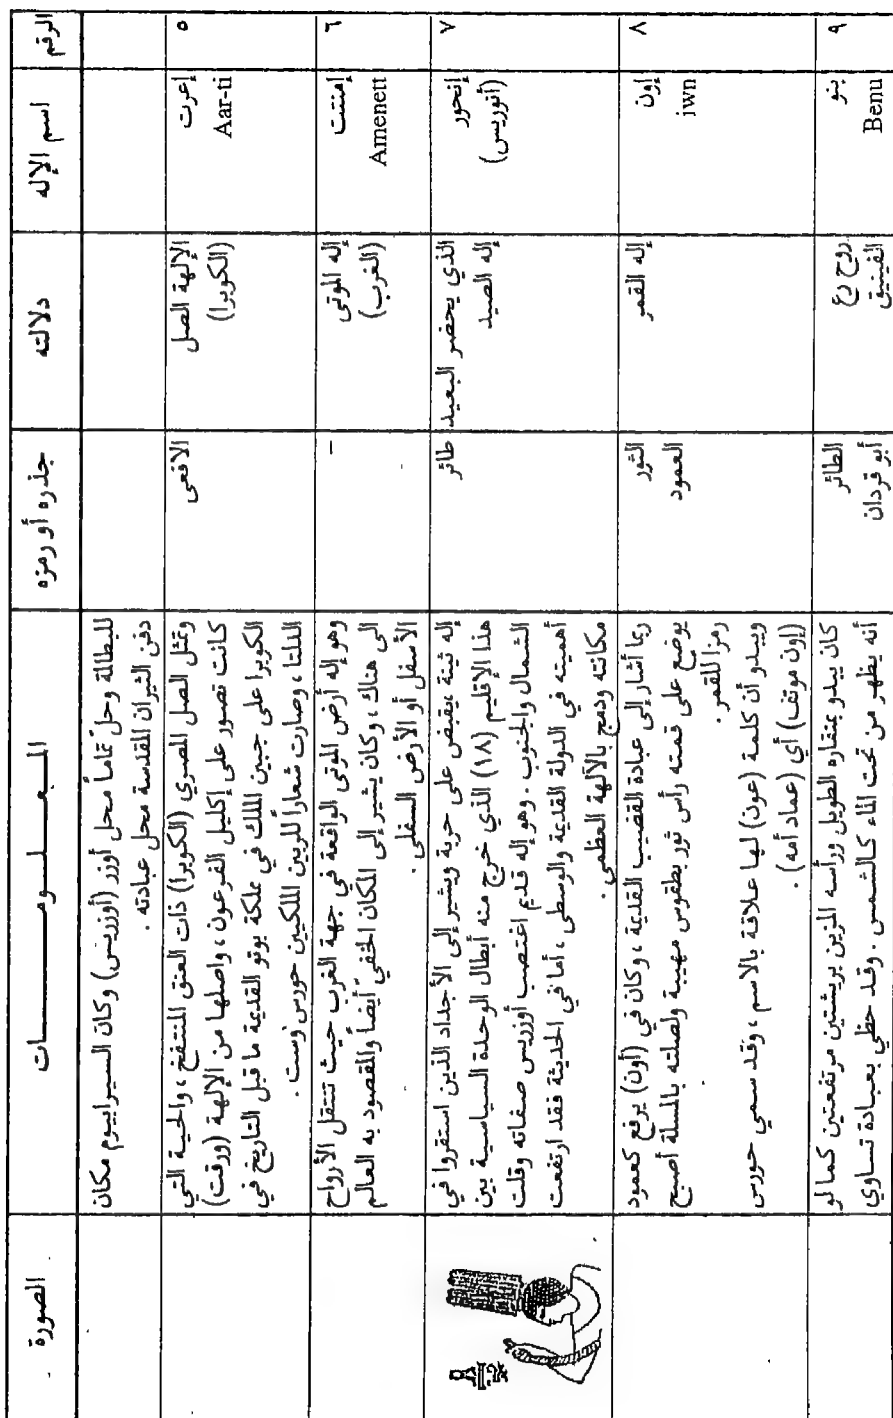 الرقم
اسم الإله
دلالته
جذره أو رمزه
المعلومات
الصورة
للبطالة وحلّ تماماً محل أوزر (أوزريس) وكان السيرابيوم مكان
دفن الثيران المقدسة محل عبادته .
٥
إعرت
Aar-ti
الإلهة الصل
(الكوبرا)
الافعى
وتمثل الصل المصري (الكوبرا) ذات العنق المنتفخ ، والحية التي
كانت تصور على إكليل الفرعون ، واصلها من الإلهة (ورقت)
الكوبرا على جبين الملك في مملكة بوتو القديمة ما قبل التاريخ في
الدلتا ، وصارت شعاراً للربين الملكيين حورس وست .
٦
إمنتت
Amenett
إله الموتى
(الغرب)
-
وهو إله أرض الموتى الواقعة في جهة الغرب حيث تنتقل الأرواح
الى هناك ، وكان يشير إلى المكان الخفيّ أيضاً والمقصود به العالم
الأسفل أو الأرض السفلى .
٧
إنحور
(أنوريس)
الذي يحضر البعيد
إله الصيد
طائر
إله ثينة ، يقبض على حربة ويشير إلى الأجداد الذين استقروا في
هذا الإقليم (١٨) الذي خرج منه أبطال الوحدة السياسية بين
الشمال والجنوب . وهو إله قديم اغتصب أوزريس صفاته وقلت
أهميته في الدولة القديمة والوسطى ، أما في الحديثة فقد ارتفعت
مكانته ودمج بالآلهة العظمى .
٨
إون
iwn
إله القمر
الثور
العمود
ربما أشار إلى عبادة القضيب القديمة ، وكان في (أون) يرفع كعمود
يوضع على قمته رأس ثور بطقوس مهيبة ولصلته بالمسلة أصبح
رمزا للقمر .
ويبدو أن كلمة (عون) لها علاقة بالاسم ، وقد سمي حورس
(إون موتف) أي (عماد أمه) .
٩
بنو
Benu
روح رع
الفينيق
الطائر
أبو قردان
كان يبدو بمنقاره الطويل ورأسه المزين بريشتين مرتفعتين كما لو
أنه يظهر من تحت الماء كالشمس . وقد حظي بعبادة تساوي